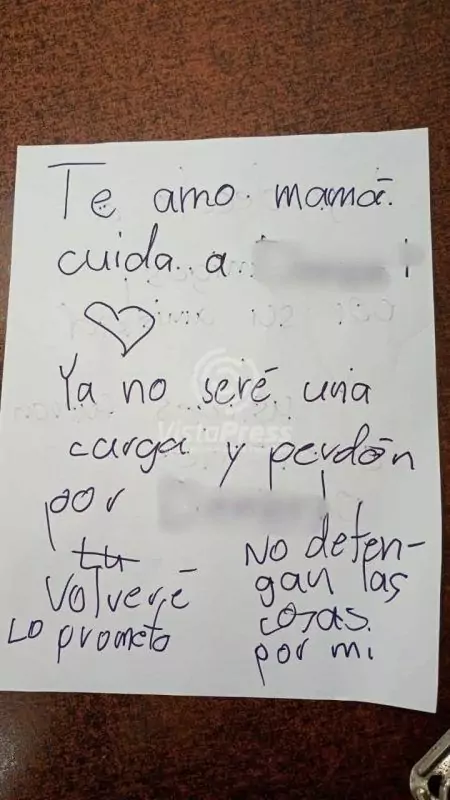 Te amo mamá.
cuida a
Ya no seré una
carga y perdón
por
tu
Volveré
LO prometo
NO deten-
gan las
cosas
por mi
VistaPress